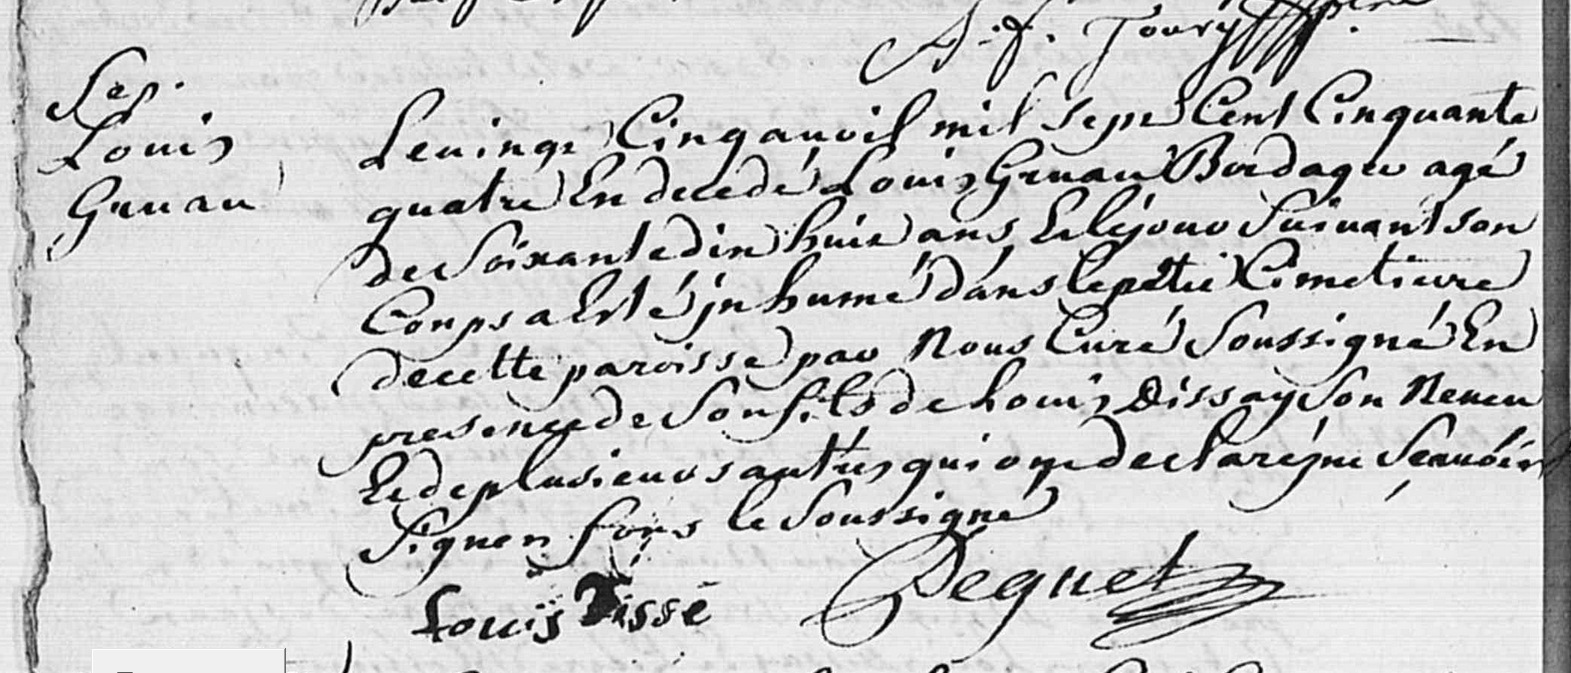 A. f. Joury
Sep.
Louis
Gruau
Le vingt Cinq avril mil sept Cent Cinquante
quatre En decedé Louis Gruau Bordager agé
de Soixante dix huit ans Et le jour Suivant son
Corps a Esté jnhumé dans le petit Cimetierre
de cette paroisse par Nous Curé Soussigné En
presence de Son fils de Louis Dissay Son Neveu
Et de plusieurs autres qui ont declaré ne Scauoir
Signer fors le Soussigné
Louis Dissé
Peguet